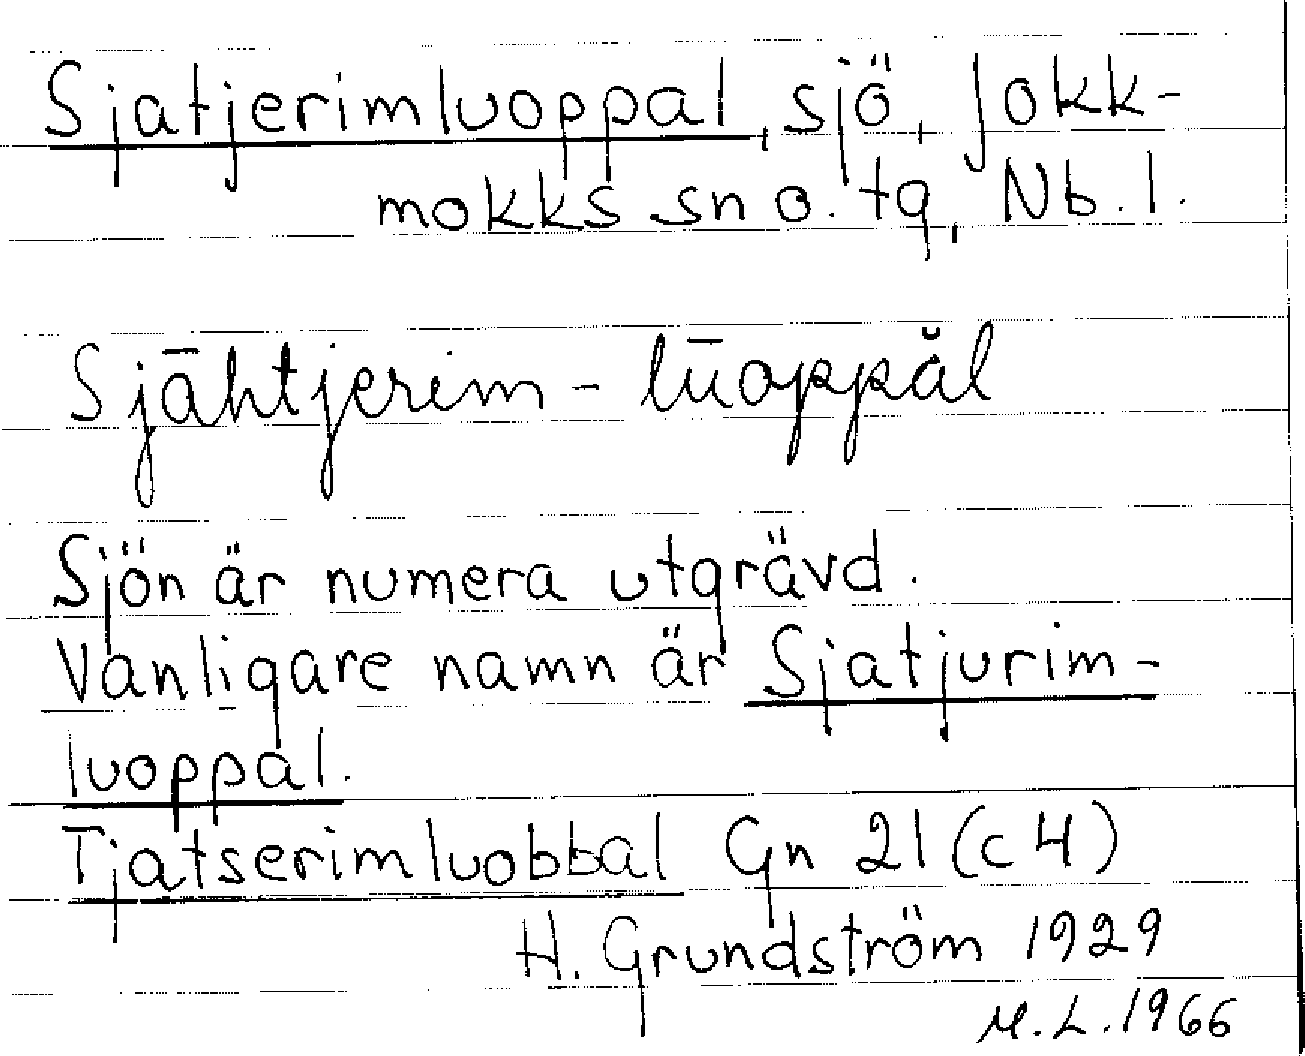 Sjatjerimluoppal, sjö, Jokk-
mokks sn o. tg, Nb. l.
Sjāhtjerim - lūoppăl
Sjön är numera utgrävd.
Vanligare namn är Sjatjurim-
luoppal.
Tjatserimluobbal Gn 21 (c4)
H. Grundström 1929
M. L. 1966